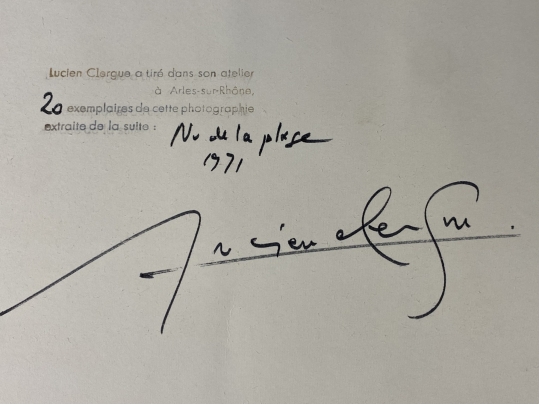 Lucien Clergue a tiré dans son atelier
à Arles-sur-Rhône,
20 exemplaires de cette photographie
extraite de la suite : Nu de la plage
1971
Lucien Clergue.